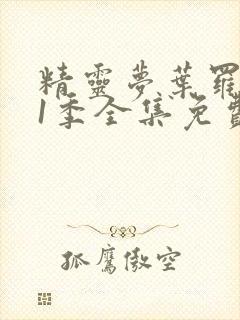 精靈夢葉羅
1季全集免費
孤鷹傲空